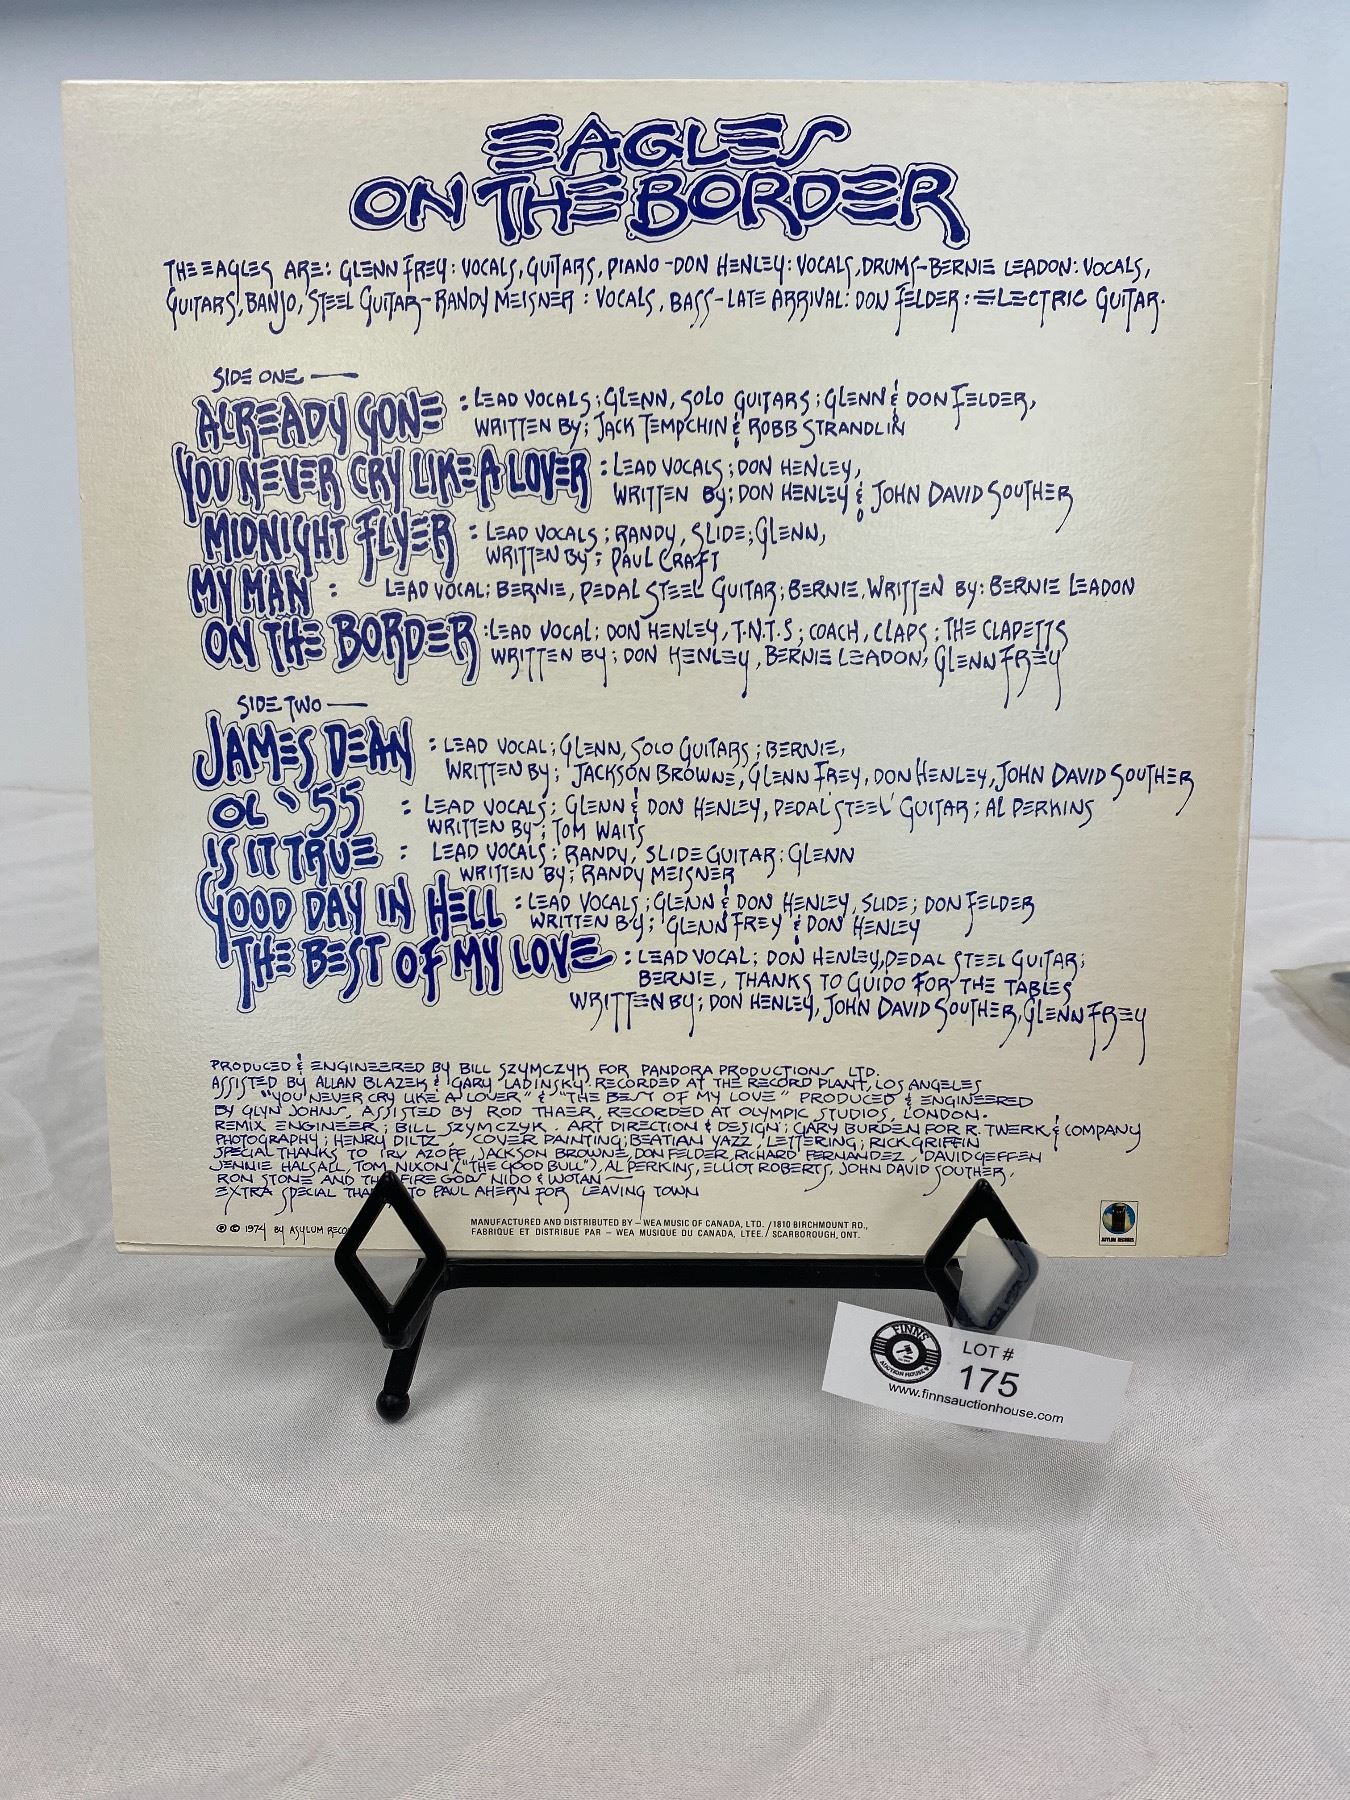 EAGLES
ON THE BORDER
THE EAGLES ARE: GLENN FREY: VOCALS, GUITARS, PIANO - DON HENLEY: VOCALS, DRUMS - BERNIE LEADON: VOCALS,
GUITARS, BANJO, STEEL GUITAR - RANDY MEISNER: VOCALS, BASS - LATE ARRIVAL: DON FELDER: ELECTRIC GUITAR.
SIDE ONE —
ALREADY GONE : LEAD VOCALS; GLENN, SOLO GUITARS; GLENN & DON FELDER,
WRITTEN BY; JACK TEMPCHIN & ROBB STRANDLIN
YOU NEVER CRY LIKE A LOVER : LEAD VOCALS; DON HENLEY,
WRITTEN BY; DON HENLEY & JOHN DAVID SOUTHER
MIDNIGHT FLYER : LEAD VOCALS; RANDY, SLIDE; GLENN,
WRITTEN BY; PAUL CRAFT
MY MAN : LEAD VOCAL; BERNIE, PEDAL STEEL GUITAR; BERNIE, WRITTEN BY: BERNIE LEADON
ON THE BORDER : LEAD VOCAL; DON HENLEY, T.N.T.S; COACH, CLAPS; THE CLAPETTS
WRITTEN BY; DON HENLEY, BERNIE LEADON, GLENN FREY
SIDE TWO —
JAMES DEAN : LEAD VOCAL; GLENN, SOLO GUITARS; BERNIE,
WRITTEN BY; JACKSON BROWNE, GLENN FREY, DON HENLEY, JOHN DAVID SOUTHER
OL '55 : LEAD VOCALS; GLENN & DON HENLEY, PEDAL STEEL GUITAR; AL PERKINS
WRITTEN BY; TOM WAITS
IS IT TRUE : LEAD VOCALS; RANDY, SLIDE GUITAR: GLENN
WRITTEN BY; RANDY MEISNER
GOOD DAY IN HELL : LEAD VOCALS; GLENN & DON HENLEY, SLIDE; DON FELDER
WRITTEN BY; GLENN FREY & DON HENLEY
THE BEST OF MY LOVE : LEAD VOCAL; DON HENLEY, PEDAL STEEL GUITAR;
BERNIE, THANKS TO GUIDO FOR THE TABLES
WRITTEN BY; DON HENLEY, JOHN DAVID SOUTHER, GLENN FREY
PRODUCED & ENGINEERED BY BILL SZYMCZYK FOR PANDORA PRODUCTIONS LTD.
ASSISTED BY ALLAN BLAZEK & GARY LADINSKY. RECORDED AT THE RECORD PLANT, LOS ANGELES
"YOU NEVER CRY LIKE A LOVER" & "THE BEST OF MY LOVE" PRODUCED & ENGINEERED
BY GLYN JOHNS, ASSISTED BY ROD THAER, RECORDED AT OLYMPIC STUDIOS, LONDON.
REMIX ENGINEER; BILL SZYMCZYK. ART DIRECTION & DESIGN; GARY BURDEN FOR R. TWERK & COMPANY
PHOTOGRAPHY; HENRY DILTZ, COVER PAINTING; BEATIAN YAZZ, LETTERING; RICK GRIFFIN
SPECIAL THANKS TO IRV AZOFF, JACKSON BROWNE, DON FELDER, RICHARD FERNANDEZ, DAVID GEFFEN
JENNIE HALSALL, TOM NIXON ("THE GOOD BULL"), AL PERKINS, ELLIOT ROBERTS, JOHN DAVID SOUTHER,
RON STONE AND THE FIRE GODS NIDO & WOTAN —
EXTRA SPECIAL TO PAUL AHERN FOR LEAVING TOWN
℗ © 1974 BY ASYLUM
MANUFACTURED AND DISTRIBUTED BY – WEA MUSIC OF CANADA, LTD. / 1810 BIRCHMOUNT RD.,
FABRIQUE ET DISTRIBUE PAR – WEA MUSIQUE DU CANADA, LTEE. / SCARBOROUGH, ONT.
ASYLUM RECORDS
FINNS
AUCTION HOUSE
LOT #
175
www.finnsauctionhouse.com